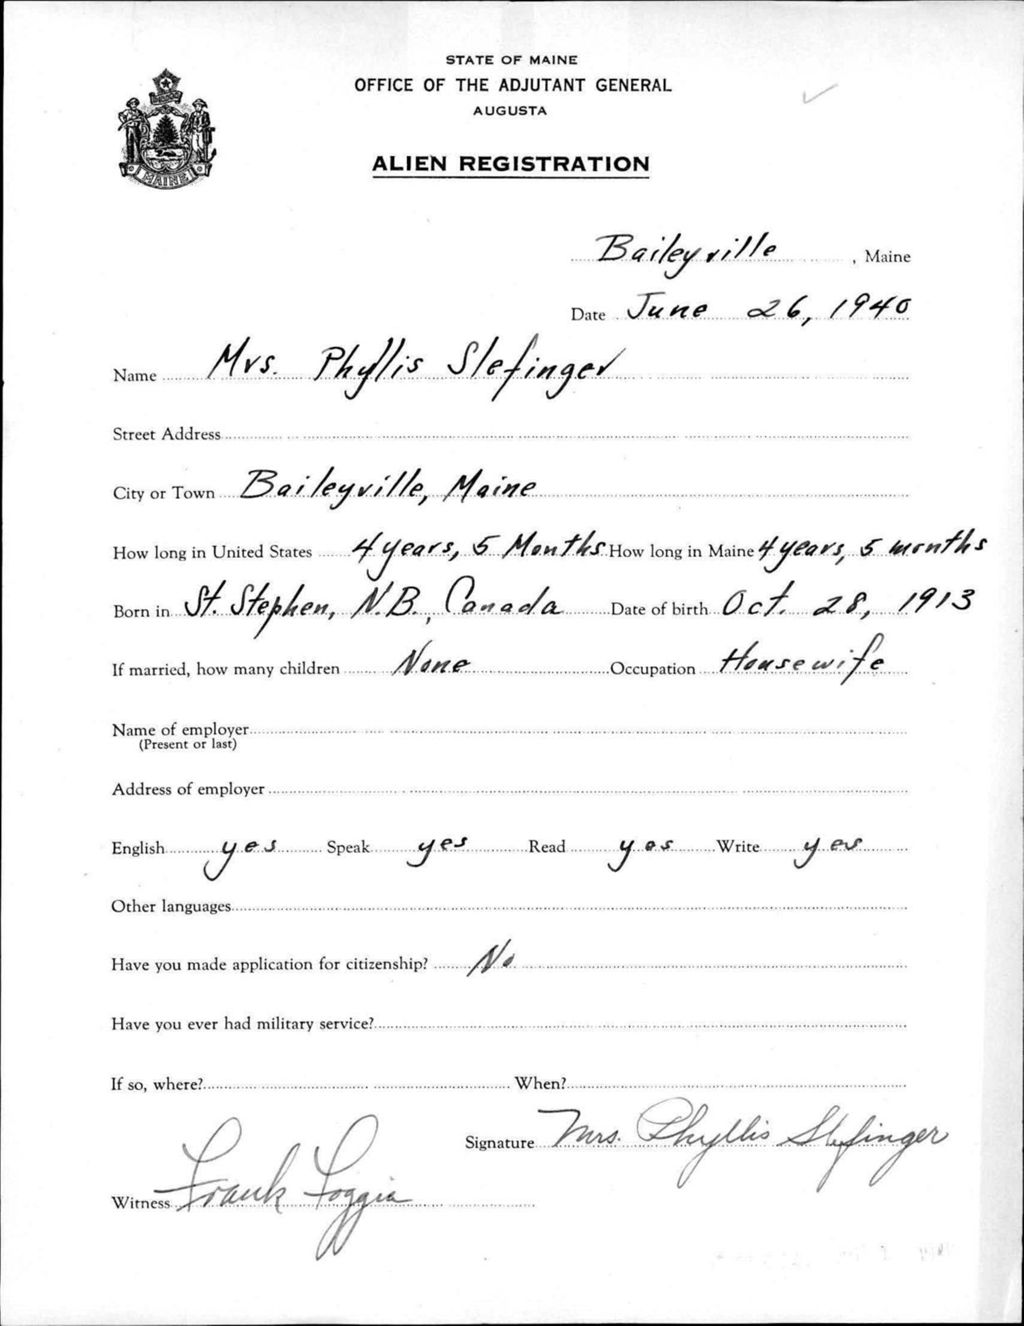 STATE OF MAINE
OFFICE OF THE ADJUTANT GENERAL
AUGUSTA
MAINE
ALIEN REGISTRATION
Baileyville, Maine
Date June 26, 1940
Name Mrs. Phyllis Slefinger
Street Address
City or Town Baileyville, Maine
How long in United States 4 years, 5 Months How long in Maine 4 years, 5 months
Born in St. Stephen, N.B., Canada Date of birth Oct. 28, 1913
If married, how many children None Occupation Housewife
Name of employer
(Present or last)
Address of employer
English yes Speak yes Read yes Write yes
Other languages
Have you made application for citizenship? No
Have you ever had military service?
If so, where? When?
Signature Mrs. Phyllis Slefinger
Witness Frank Foggia